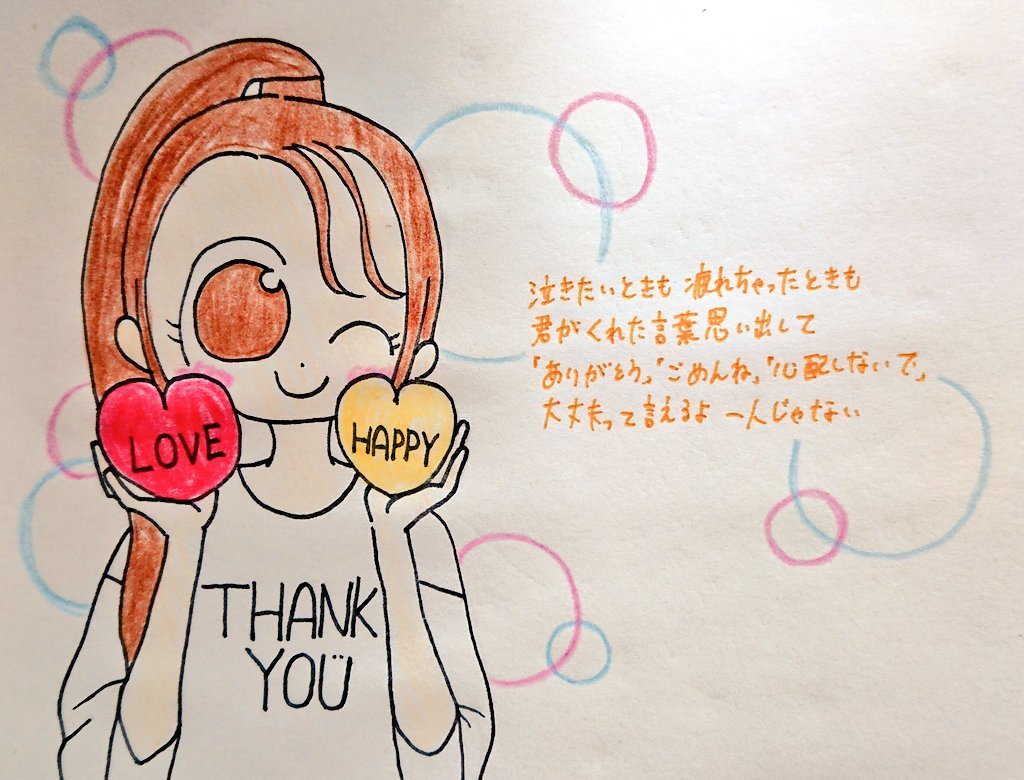 泣きたいときも 疲れちゃったときも
君がくれた言葉思い出して
「ありがとう」「ごめんね」「心配しないで」
大丈夫って言えるよ 一人じゃない
LOVE
HAPPY
THANK
YOU